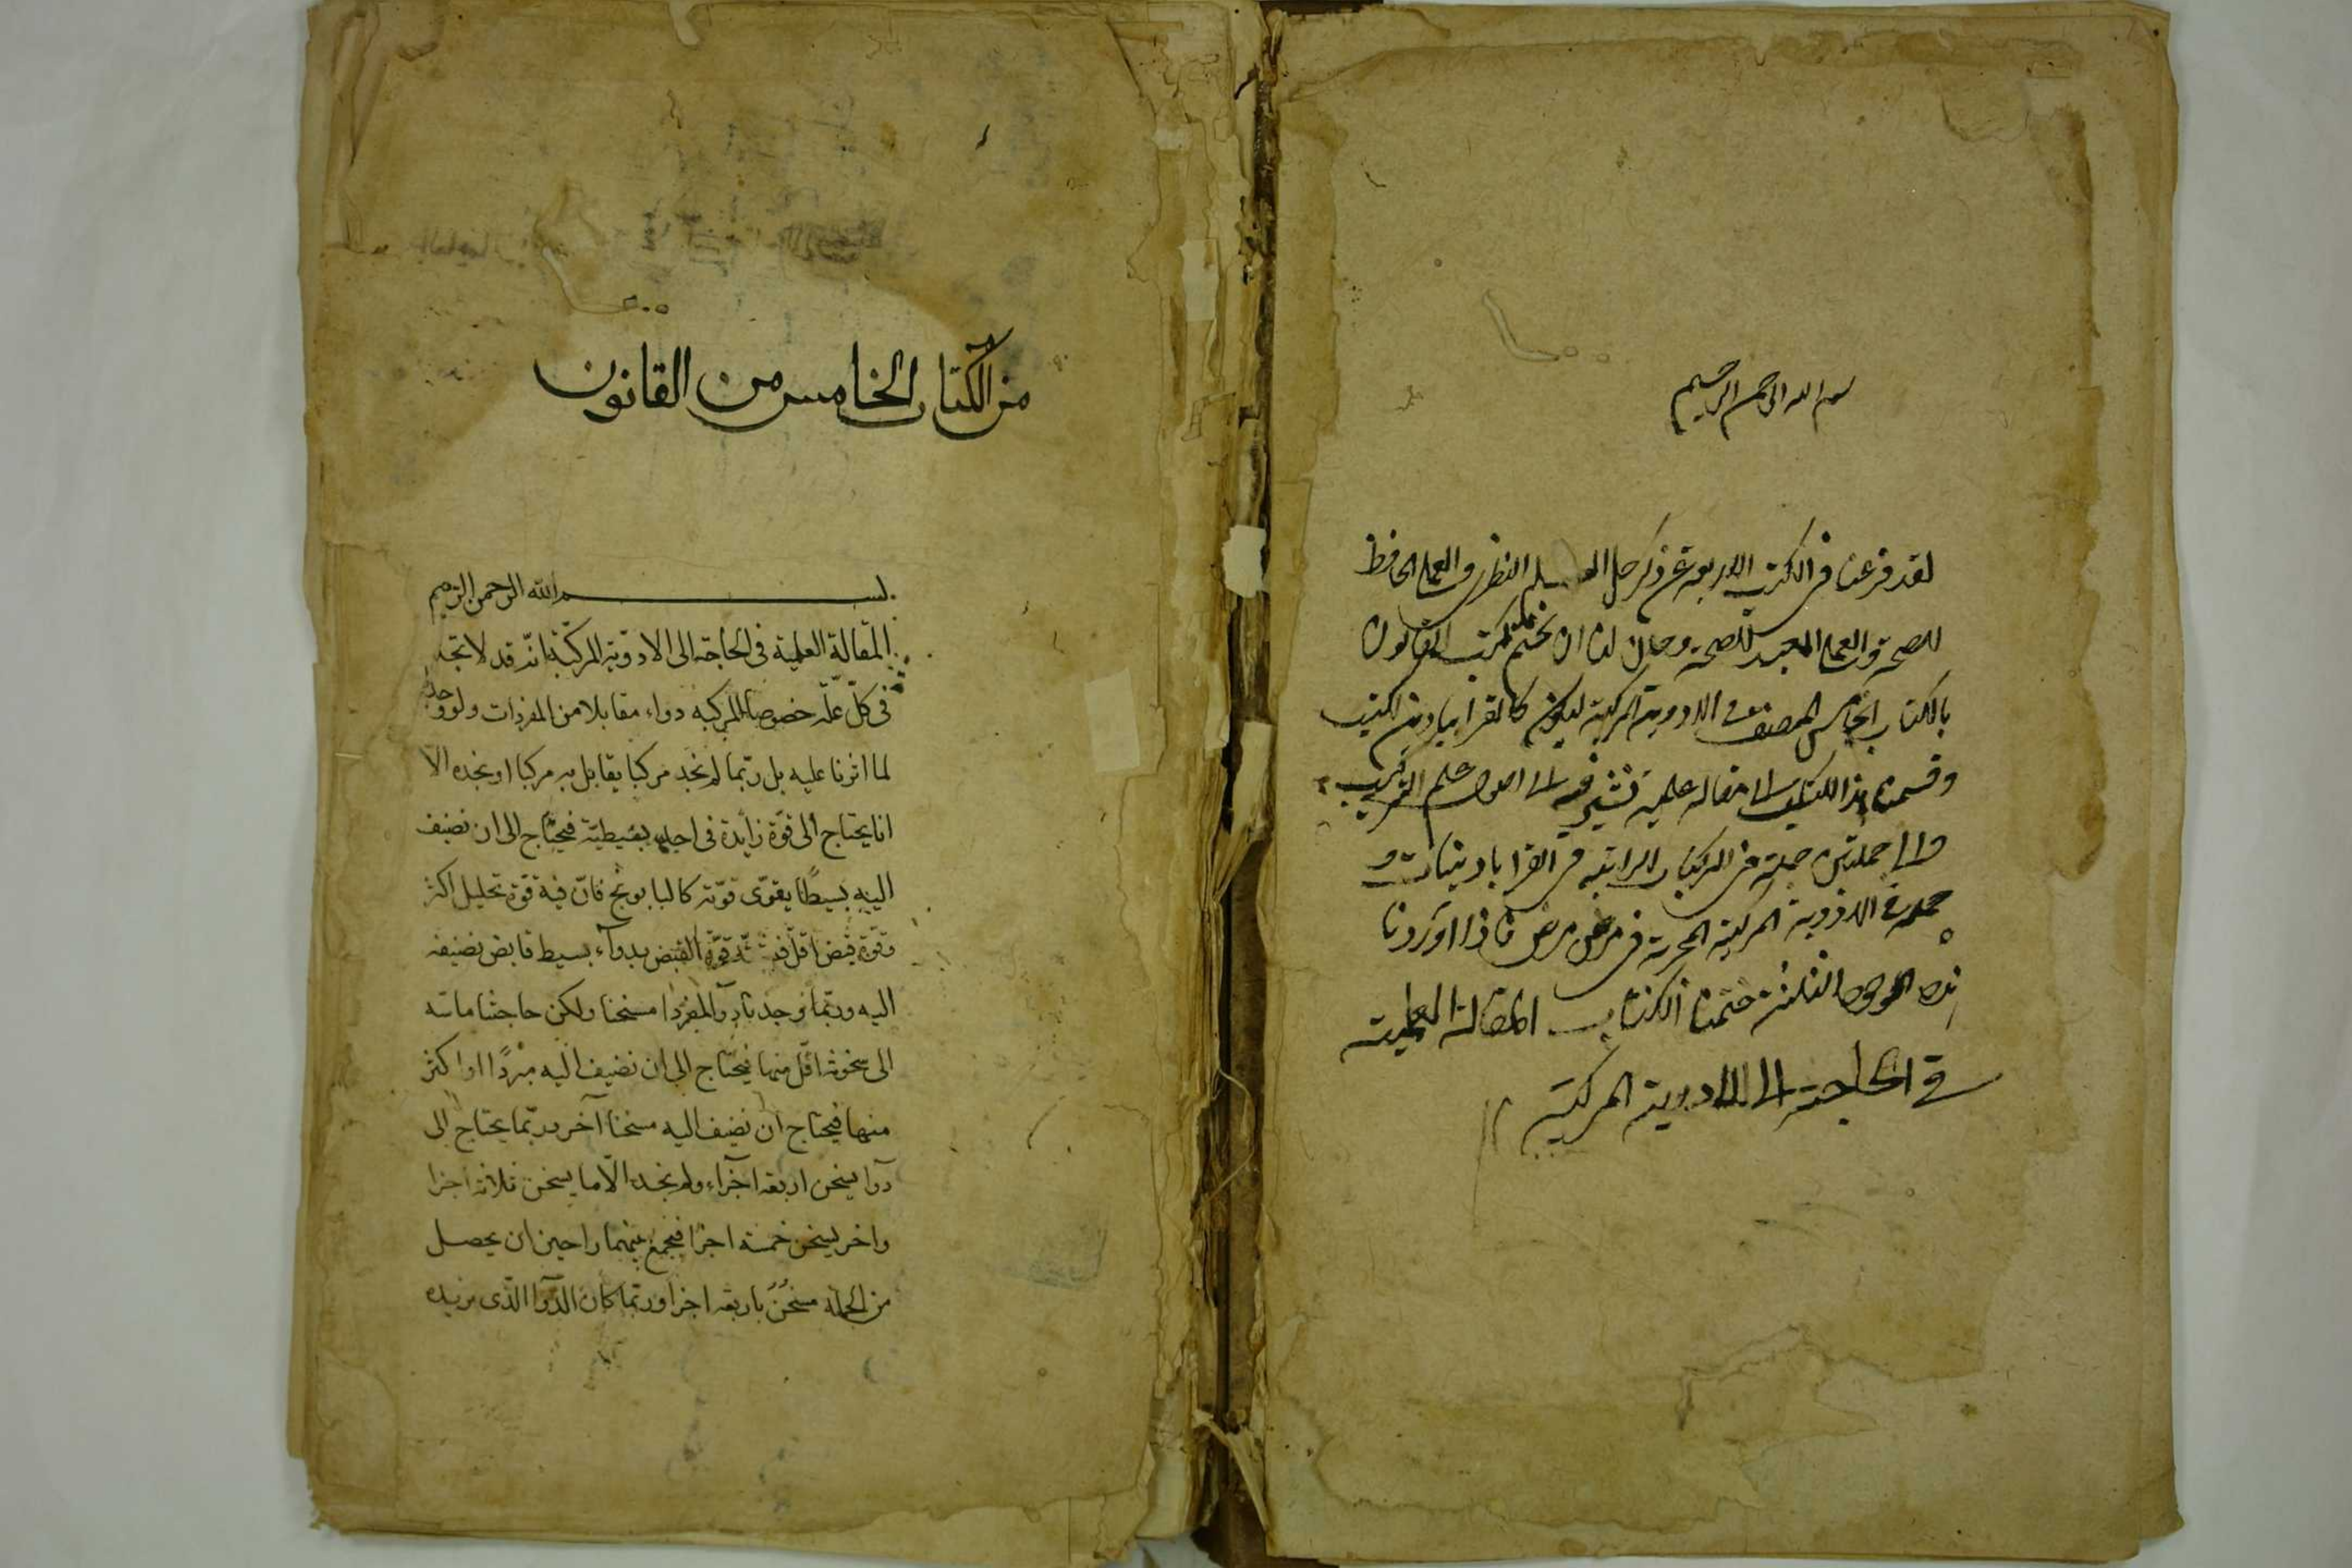 بسم الله الرحمن الرحيم
لقد فرغنا في الكتب الاربعة عن ذكر جل العلم النظري والعملي الحافظ
للصحة والعملي المعيد للصحة وحان لنا ان نختم كتب القانون
بالكتاب الخامس المصنف في الادوية المركبة ليكون كالقراباذين لكتب
وقسمنا هذا الكتاب الى مقالة علمية نشير فيه الى اصول علم التركيب
والى جملتين جملة في المركبات الراتبة في القراباذينات و
جملة في الادوية المركبة المجربة في مرض مرض فاذا اوردنا
هذه الوجوه الثلثة ختمنا الكتاب المقالة العلمية
في الحاجة الى الادوية المركبة
من الكتاب الخامس من القانون
بسم الله الرحمن الرحيم
المقالة العلمية فى الحاجة الى الادوية المركّبة انّه قد لا تجد
فى كلّ علّة خصوصا المركبه دواء مقابلا من المفردات ولو وجد
لما اثرنا عليه بل ربّما لم نجد مركبا يقابل به مركبا او نجده الا
انا يحتاج الى قوّة زايدة فى احد بسيطيّه فيحتاج الى ان نضيف
اليه بسيطًا يقوّى قوّته كالبابونج فانّ فيه قوّة تحليل اكثر
وقوّة قبض اقلّ قوّة القبض بدوآء بسيط قابض نضيفه
اليه وربّما وجدنا دوآ المفردا مسخنا ولكن حاجتنا ماسّه
الى سخونة اقلّ منها فيحتاج الى ان نضيف اليه مبّردًا او اكثر
منها فيحتاج ان نضيف اليه مسخنا آخر وربّما يحتاج الى
دوآ يسخن اربعة اجزآء ولم نجد الّا ما يسخن ثلاثة اجزا
واخر يسخن خمسة اجزا فنجمع بينهما راجين ان يحصل
من الجملة مسخّن باربعة اجزا وربّما كان الدّوآ الذّى نريده